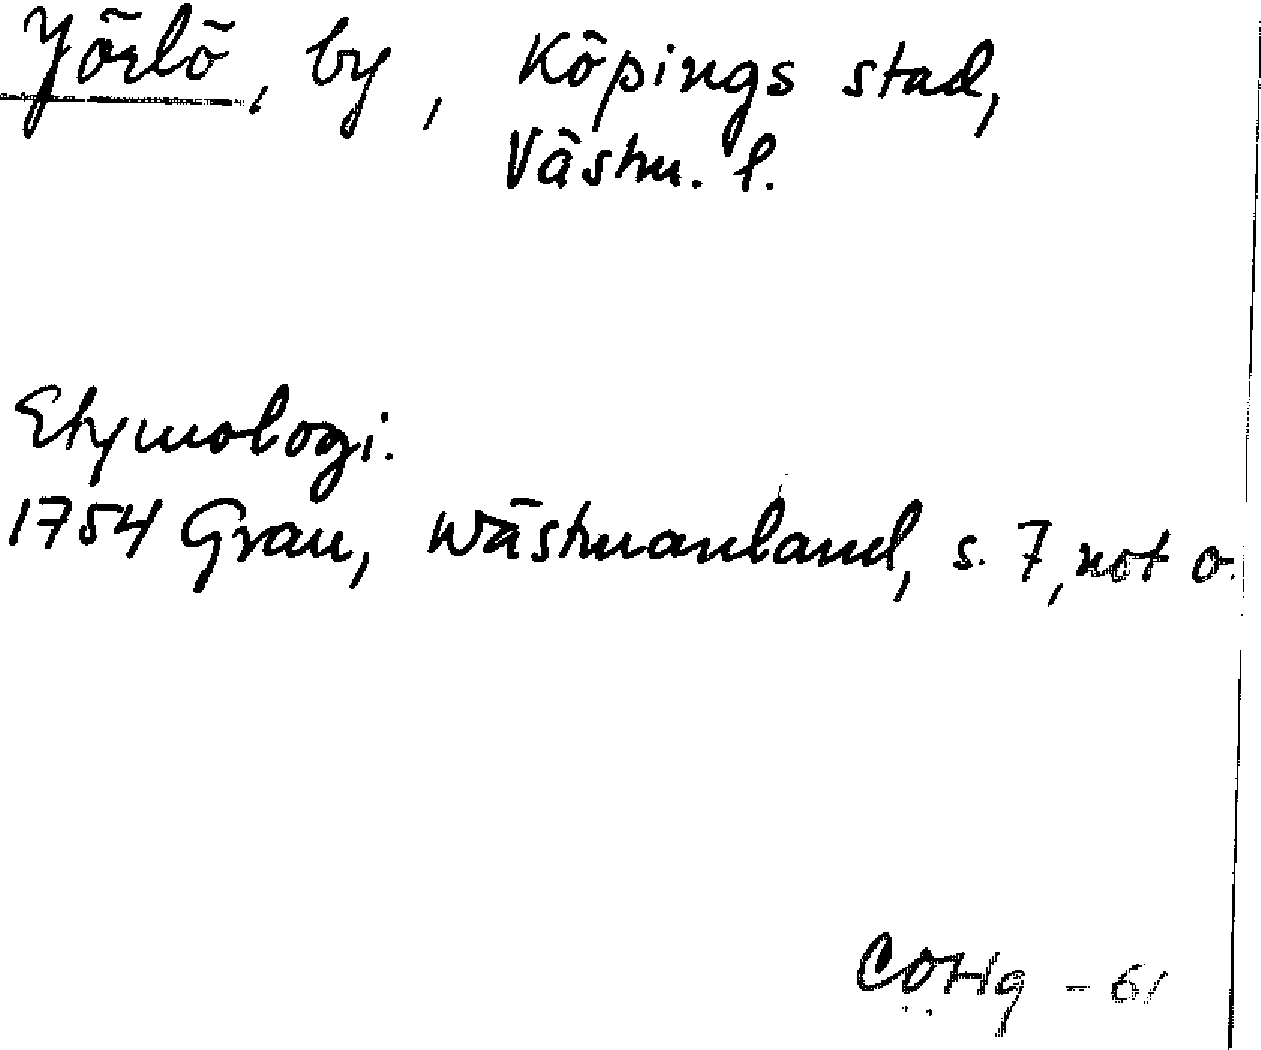 Yörlö, by, Köpings stad,
Västm. l.
Etymologi.
1754 Grau, Wästmanland, s. 7, not o.
COHg - 61